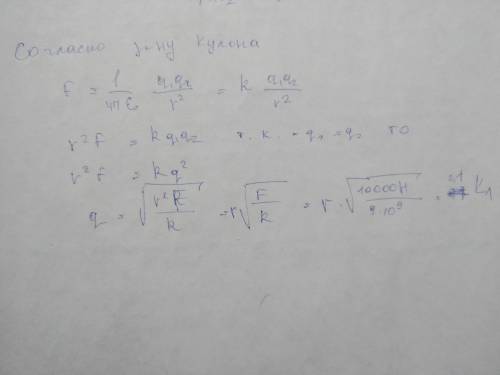 Согласно з-ну Кулона
F = 1/4πε₀ q₁q₂/r² = k q₁q₂/r²
r²F = kq₁q₂ т.к. q₁ = q₂ то
r²F = kq²
q = √(r²F/k) = r√(F/k) = r · √(10000H/9·10⁹) =